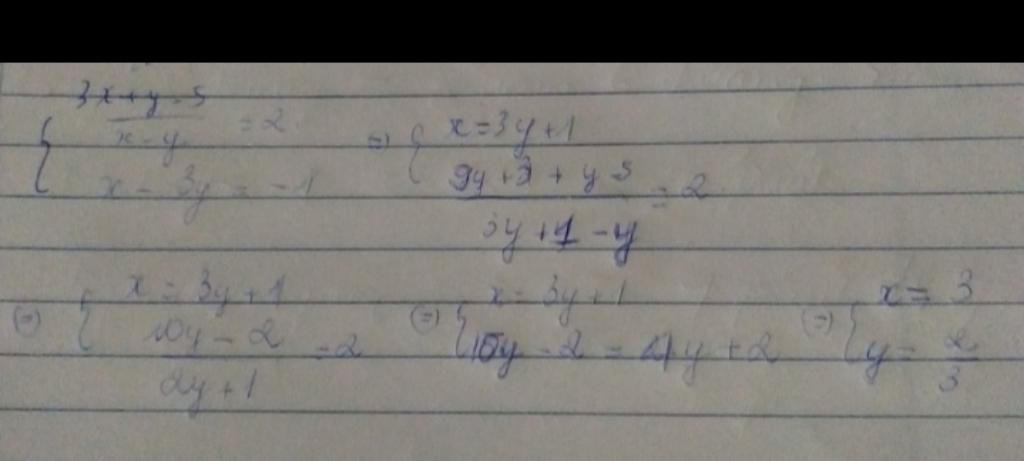 { (3x+y-5)/(x-y) = 2
x - 3y = -1
=> { x = 3y+1
(9y+3+y-5)/(3y+1-y) = 2
(=) { x = 3y+1
(10y-2)/(2y+1) = 2
(=) { x = 3y+1
10y - 2 = 4y + 2
(=) { x = 3
y = 2/3